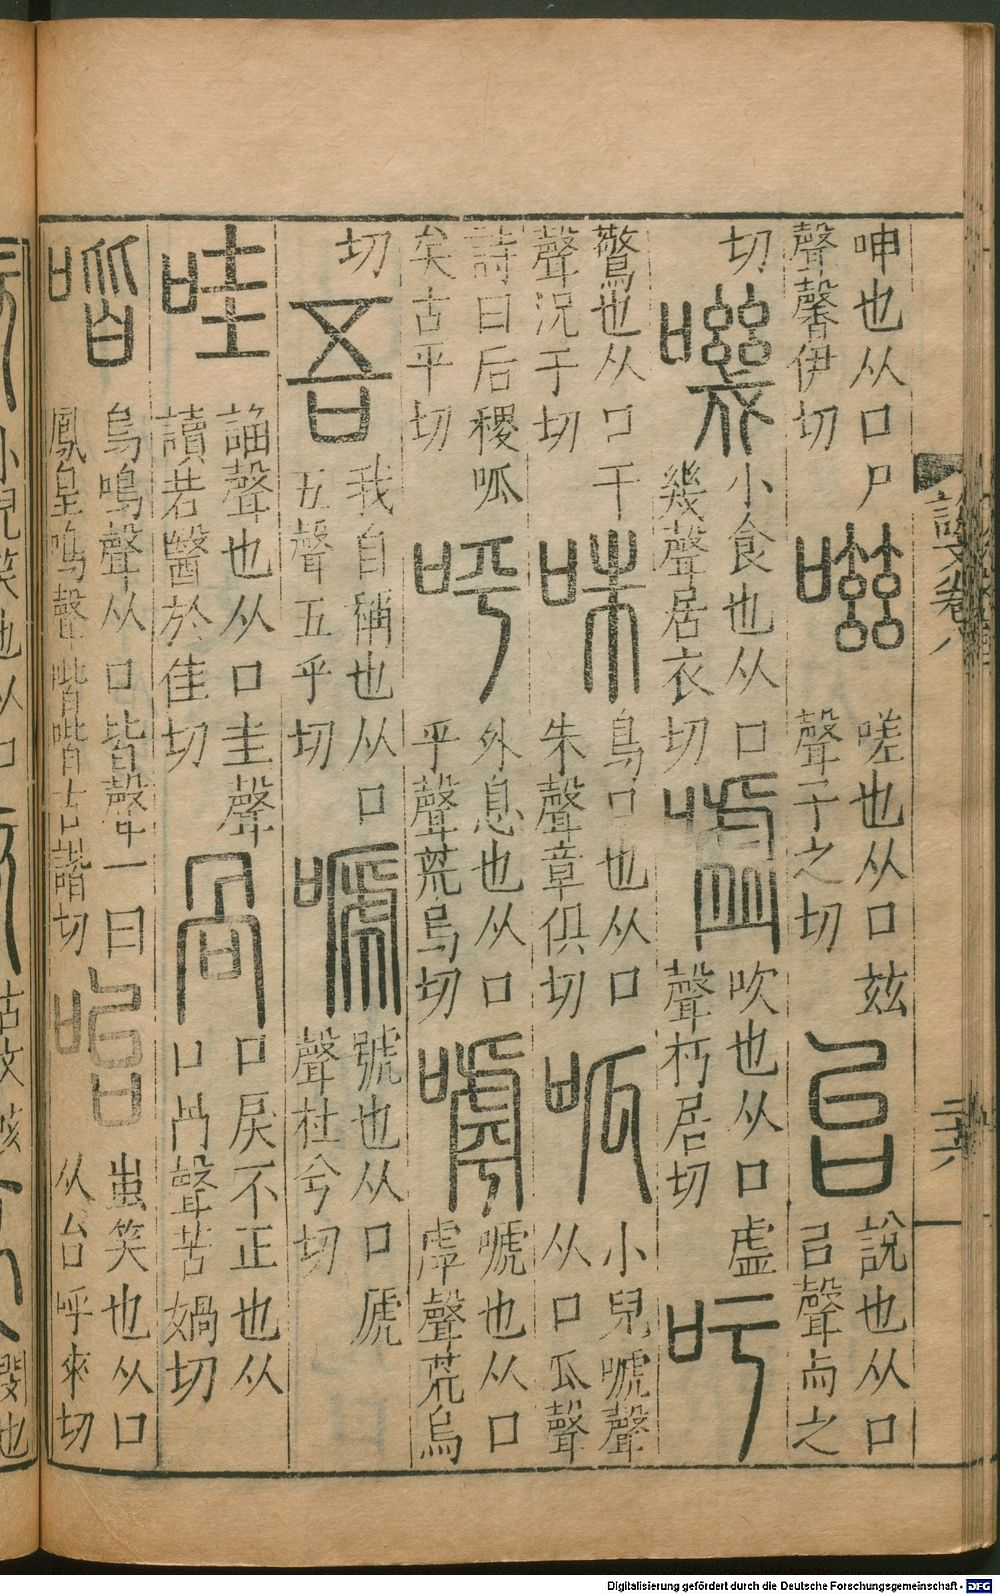 呻也从口尸
聲馨伊切
嗞
嗟也从口茲
聲子之切
㠯
說也从口
己聲赤之
切
嘰
小食也从口
幾聲居衣切
噓
吹也从口虛
聲朽居切
吁
驚也从口于
聲況于切
咮
鳥口也从口
朱聲章俱切
呱
小兒嗁聲
从口瓜聲
詩曰后稷呱
矣古乎切
呼
外息也从口
乎聲荒烏切
嘑
嗁也从口
虖聲荒烏
切
吾
我自稱也从口
五聲五乎切
嗁
號也从口虒
聲杜兮切
哇
諂聲也从口圭聲
讀若醫於佳切
咼
口戾不正也从
口冎聲苦媧切
喈
鳥鳴聲从口皆聲一曰
鳳皇鳴聲喈喈古諧切
咍
蚩笑也从口
从台呼來切
說文卷八
二十六
Digitalisierung gefördert durch die Deutsche Forschungsgemeinschaft - DFG